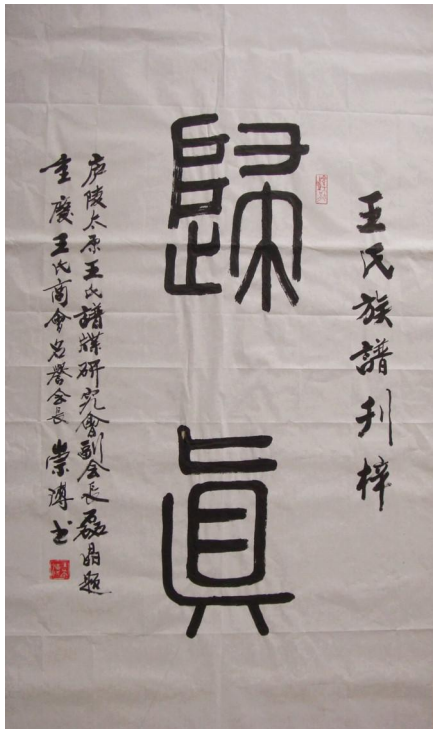 王氏族譜刋梓
歸眞
庐陵太原王氏譜牒研究會副会長磊晶題
重慶王氏商會名譽会長 崇溥书